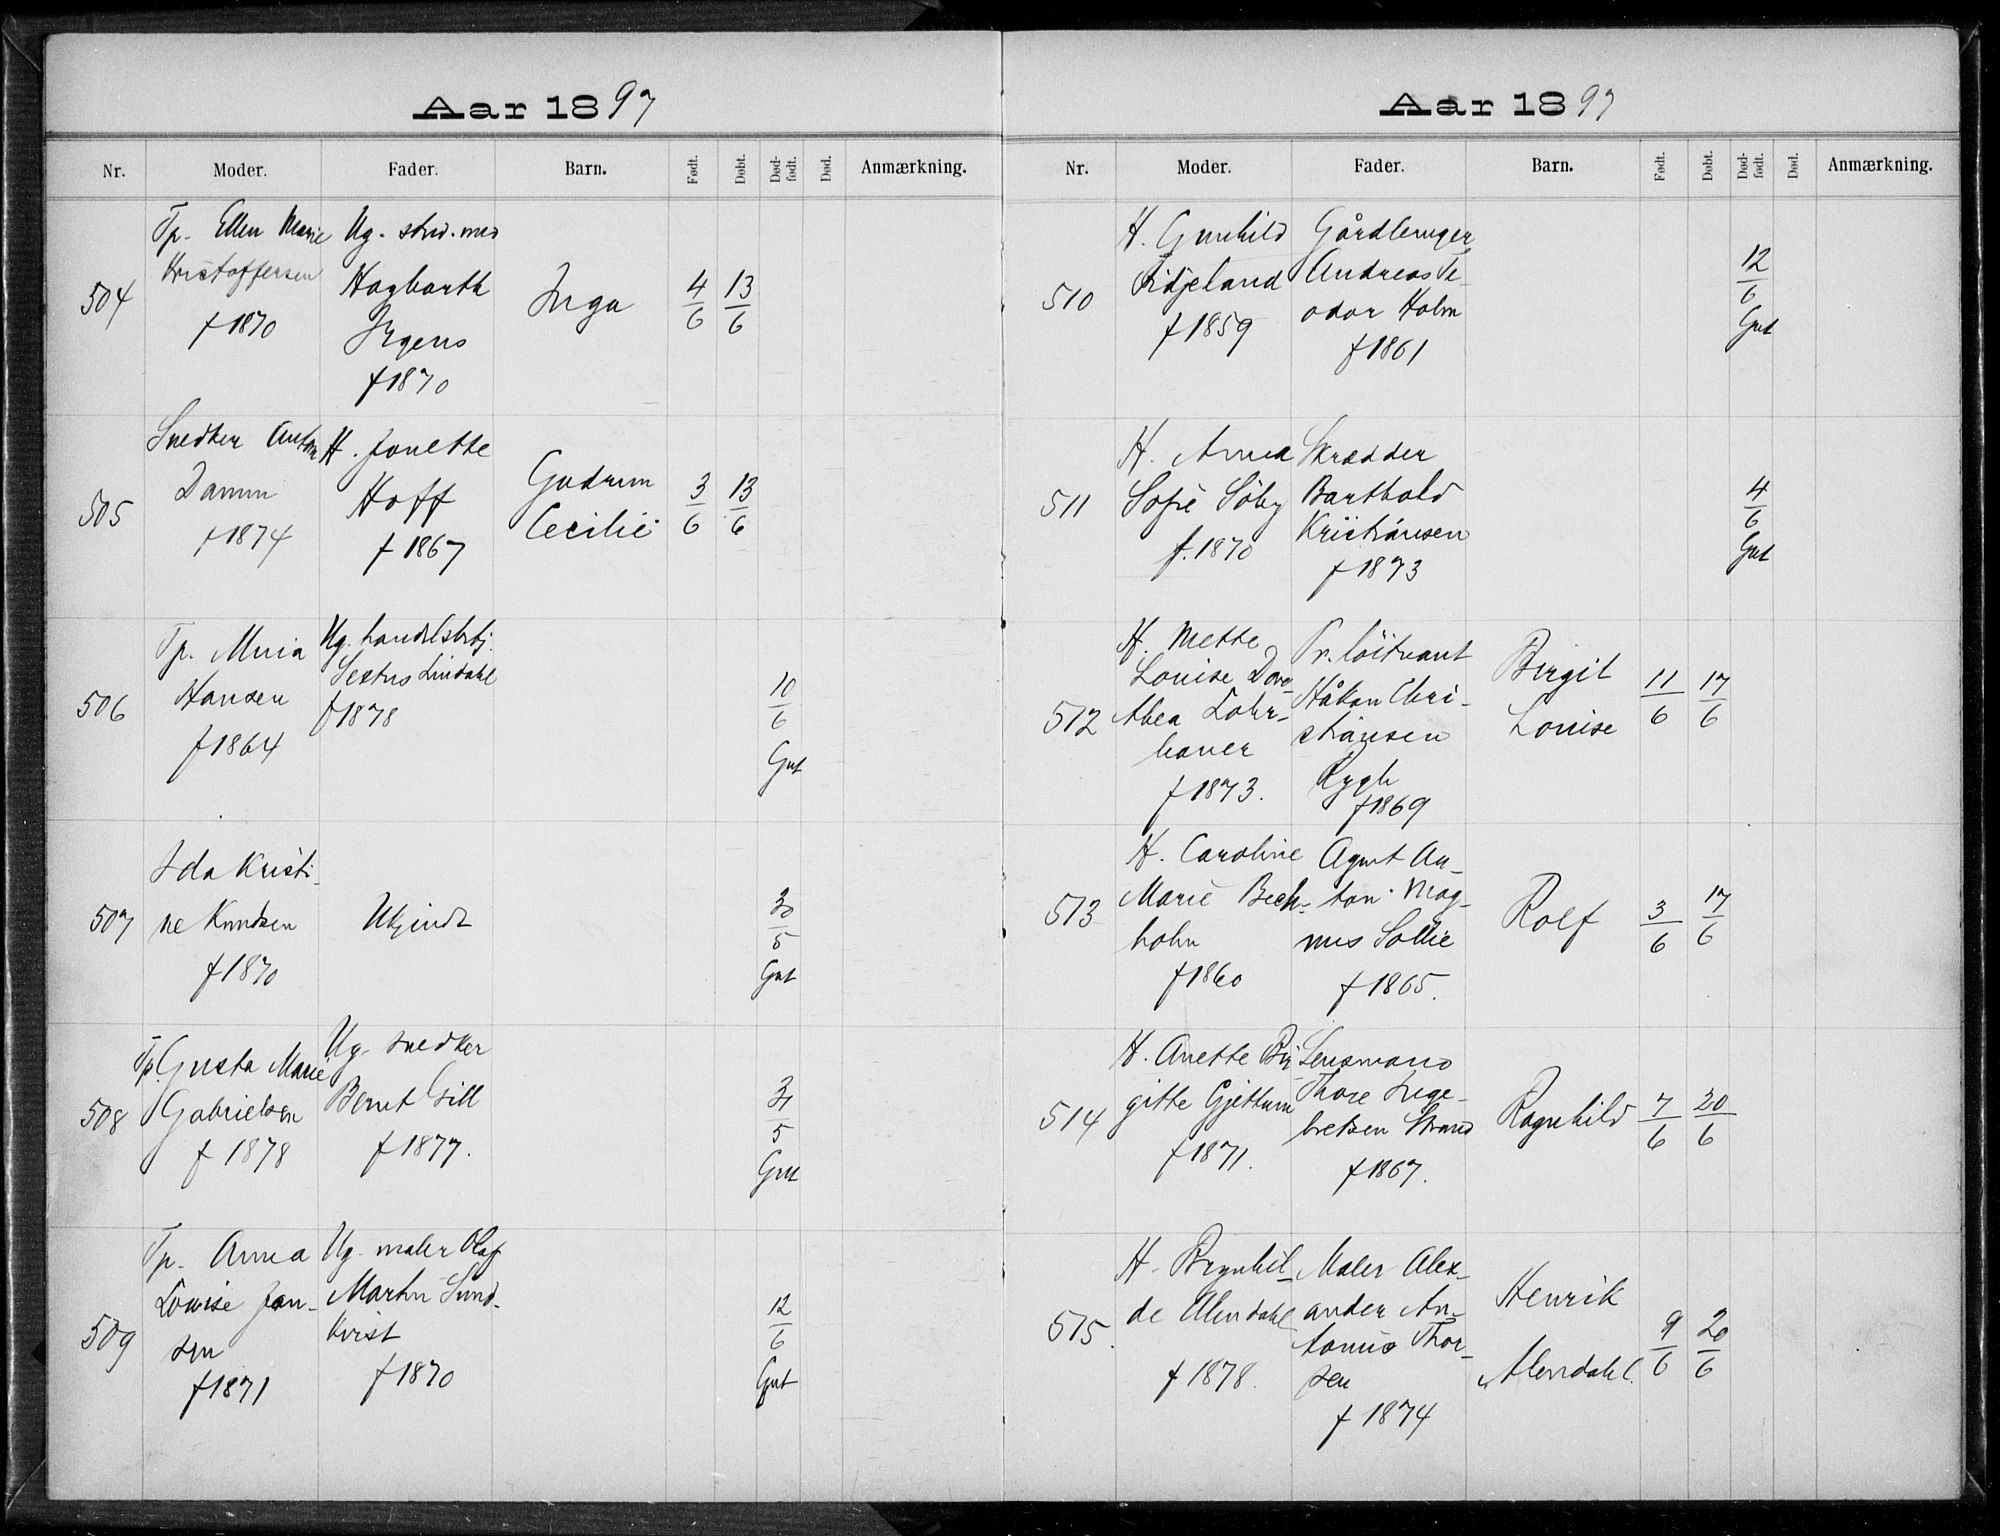 Aar 1897
Nr. Moder. Fader. Barn. Født. Døbt. Død-født. Død. Anmærkning.
504
Tp. Ellen Marie
Kristoffersen
f 1870
Ug. stud. med
Hagbarth
Irgens
f 1870
Inga
4/6
13/6
505
Snedker Anton
Damm
f 1874
H. Jonette
Hoff
f 1867
Gudrun
Cecilie
3/6
13/6
506
Tp. Maria
Hansen
f 1864
Ug. handelsbetj.
Sextus Lindahl
f 1878
10/6
Gut
507
Ida Kristi-
ne Knudsen
f 1870
Ukjendt
30/5
Gut
508
Tp. Gusta Marie
Gabrielsen
f 1878
Ug. snedker
Bernt Gill
f 1877.
31/5
Gut
509
Tp. Anna
Lovise Jan-
sen
f 1871
Ug. maler Olaf
Martin Sund-
kvist
f 1870
12/6
Gut
Aar 1897
Nr. Moder. Fader. Barn. Født. Døbt. Død-født. Død. Anmærkning.
510
H. Gunhild
Fidjeland
f 1859
Gårdbruger
Andreas Te-
odor Holm
f 1861
12/6
Gut
511
H. Anna
Sofie Söby
f. 1870
Skrædder
Barthold
Kristiansen
f 1873
4/6
Gut
512
H. Mette
Louise Doro-
thea Lohr-
bauer
f 1873.
Pr. löitnant
Håkon Chri-
stiansen
Rygh
f 1869
Birgit
Louise
11/6
17/6
513
H. Caroline
Marie Bech-
holm
f 1860
Agent An-
ton Mag-
nus Sollie
f 1865.
Rolf
3/6
17/6
514
H. Anette Bir-
gitte Gjettum
f 1871.
Lensmand
Thore Inge-
bretsen Strand
f 1867.
Ragnhild
7/6
20/6
515.
H. Brynhil-
de Alendahl
f 1878.
Maler Alex-
ander An-
tonius Thor-
sen
f 1874
Henrik
Alendahl.
9/6
20/6